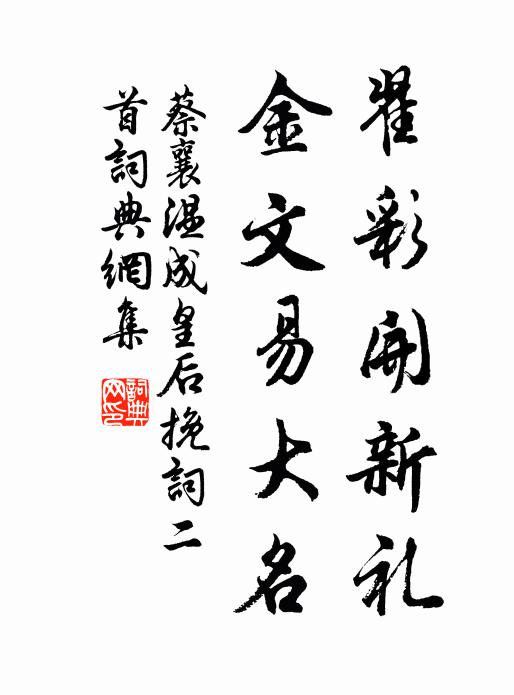 翟彩開新礼
金文易大名
蔡襄温成皇后挽詞二
首詞典網集
詞典网印